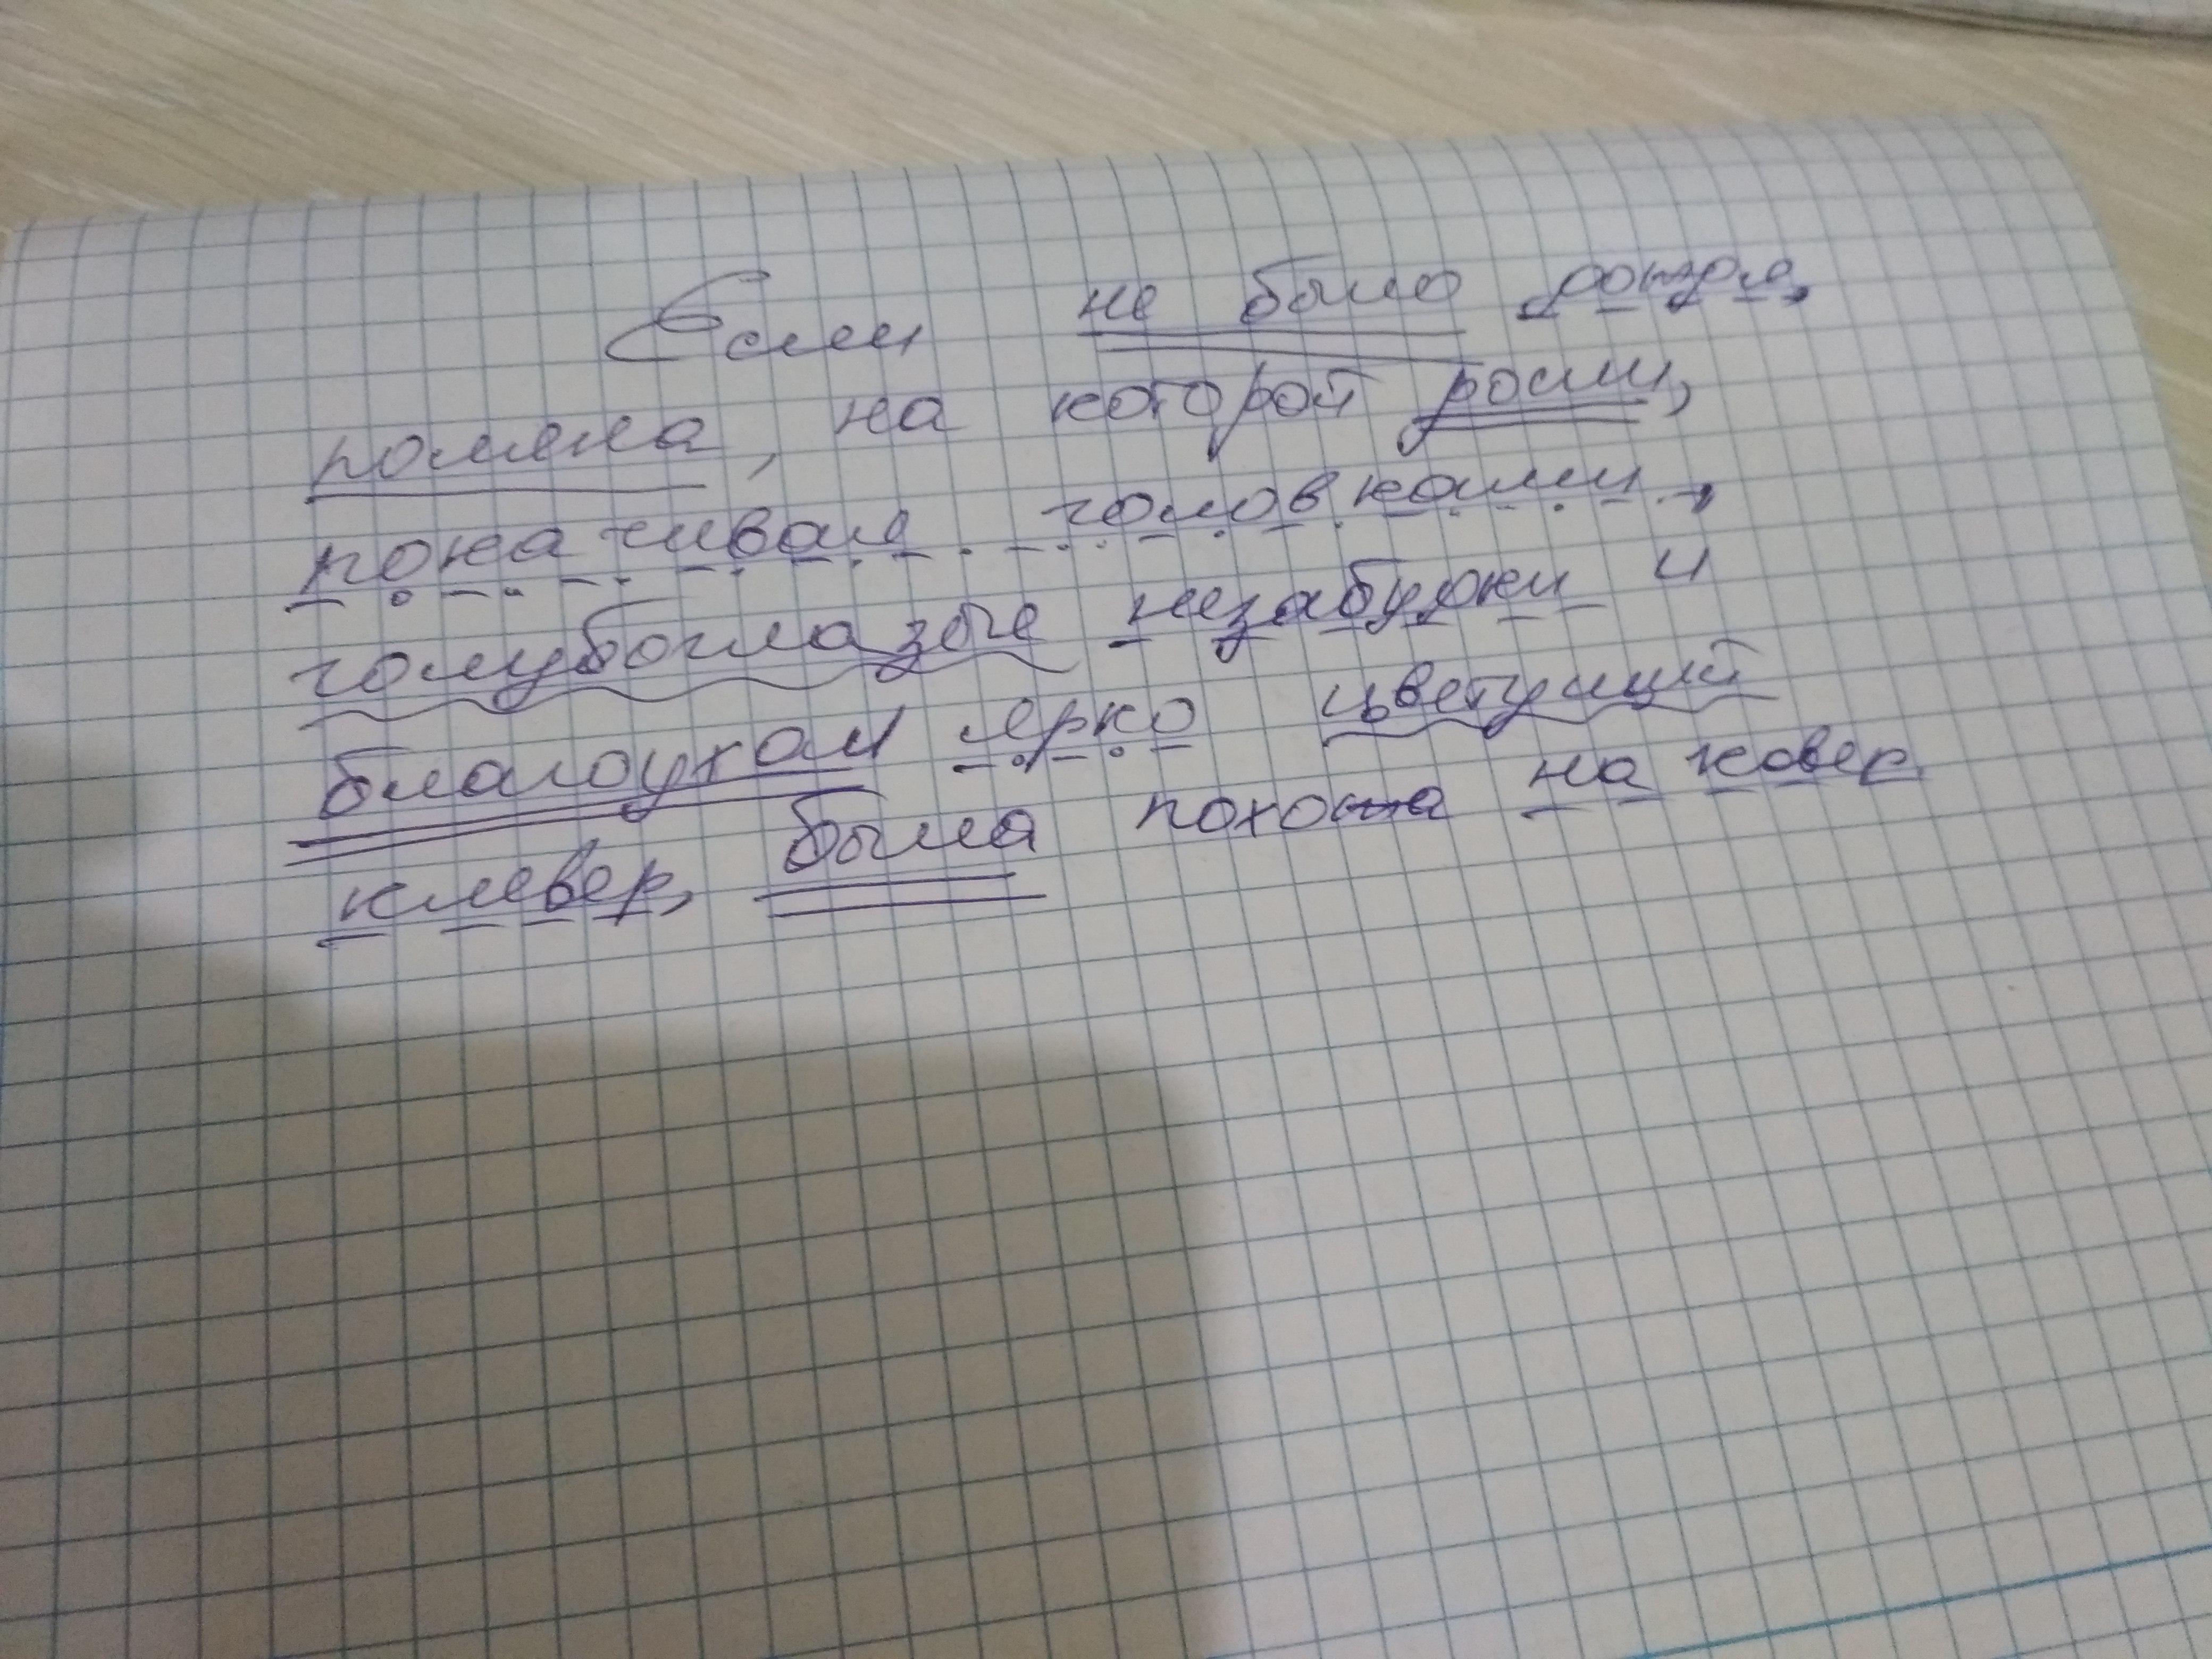 Если не было дождя,
поляна, на которой росли,
покачивая головками,
голубоглазые незабудки и
благоухал ярко цветущий
клевер, была похожа на ковер